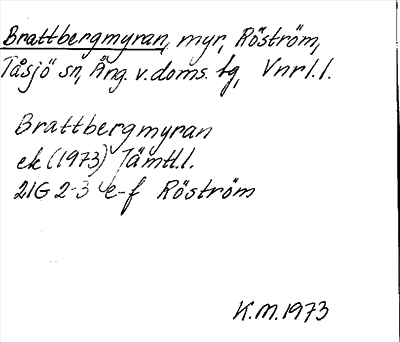 Brattbergmyran, myr, Röström,
Tåsjö sn, Ång. v. doms. tg, Vnrl. l.
Brattbergmyran
ek (1973) Jämtl. l.
21G 2-3 e-f Röström
K.M. 1973